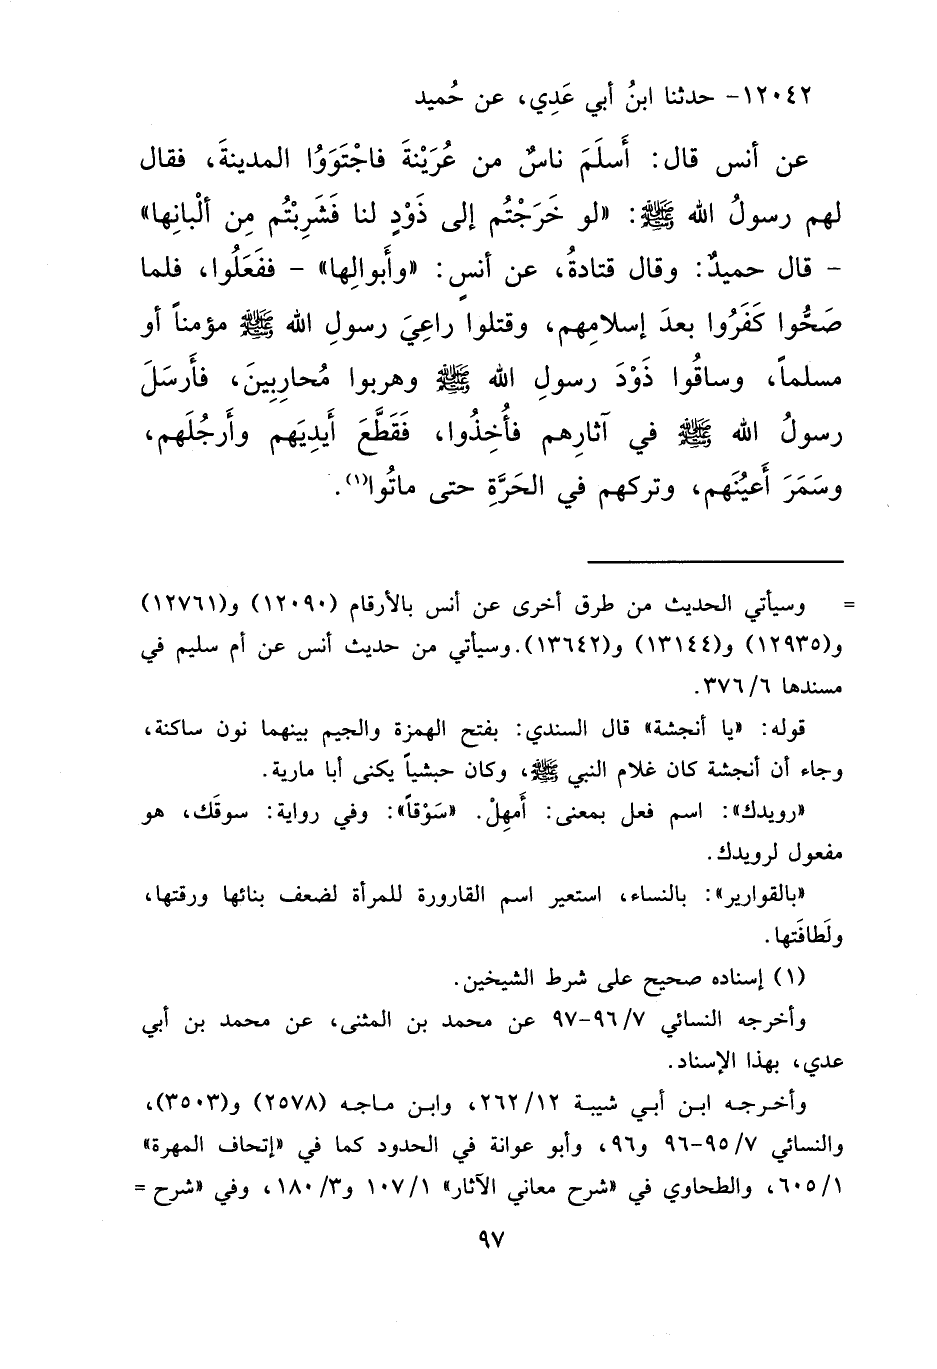 ١٢٠٤٢- حدثنا ابنُ أبي عَدِي، عن حُميد
عن أنس قال: أَسلَمَ ناسٌ من عُرَيْنةَ فاجْتَوَوُا المدينةَ، فقال
لهم رسولُ الله ﷺ: «لو خَرَجْتُم إلى ذَوْدٍ لنا فَشَرِبْتُم مِن ألْبانِها»
- قال حميدٌ: وقال قتادةُ، عن أنسٍ: «وأَبوالِها» - ففَعَلُوا، فلما
صَحُّوا كَفَرُوا بعدَ إسلامِهم، وقتلوا راعِيَ رسولِ الله ﷺ مؤمناً أو
مسلماً، وساقُوا ذَوْدَ رسولِ الله ﷺ وهربوا مُحارِبِينَ، فأَرسَلَ
رسولُ الله ﷺ في آثارِهم فأُخِذُوا، فَقَطَّعَ أَيدِيَهم وأَرجُلَهم،
وسَمَرَ أَعيُنَهم، وتركهم في الحَرَّةِ حتى ماتُوا(١).
= وسيأتي الحديث من طرق أخرى عن أنس بالأرقام (١٢٠٩٠) و(١٢٧٦١)
و(١٢٩٣٥) و(١٣١٤٤) و(١٣٦٤٢).وسيأتي من حديث أنس عن أم سليم في
مسندها ٣٧٦/٦.
قوله: «يا أنجشة» قال السندي: بفتح الهمزة والجيم بينهما نون ساكنة،
وجاء أن أنجشة كان غلام النبي ﷺ، وكان حبشياً يكنى أبا مارية.
«رويدك»: اسم فعل بمعنى: أَمهِلْ. «سَوْقاً»: وفي رواية: سوقَك، هو
مفعول لرويدك.
«بالقوارير»: بالنساء، استعير اسم القارورة للمرأة لضعف بنائها ورقتها،
ولَطافَتها.
(١) إسناده صحيح على شرط الشيخين.
وأخرجه النسائي ٩٦/٧-٩٧ عن محمد بن المثنى، عن محمد بن أبي
عدي، بهذا الإسناد.
وأخرجه ابن أبي شيبة ٢٦٢/١٢، وابن ماجه (٢٥٧٨) و(٣٥٠٣)،
والنسائي ٩٥/٧-٩٦ و٩٦، وأبو عوانة في الحدود كما في «إتحاف المهرة»
٦٠٥/١، والطحاوي في «شرح معاني الآثار» ١٠٧/١ و١٨٠/٣، وفي «شرح =
٩٧